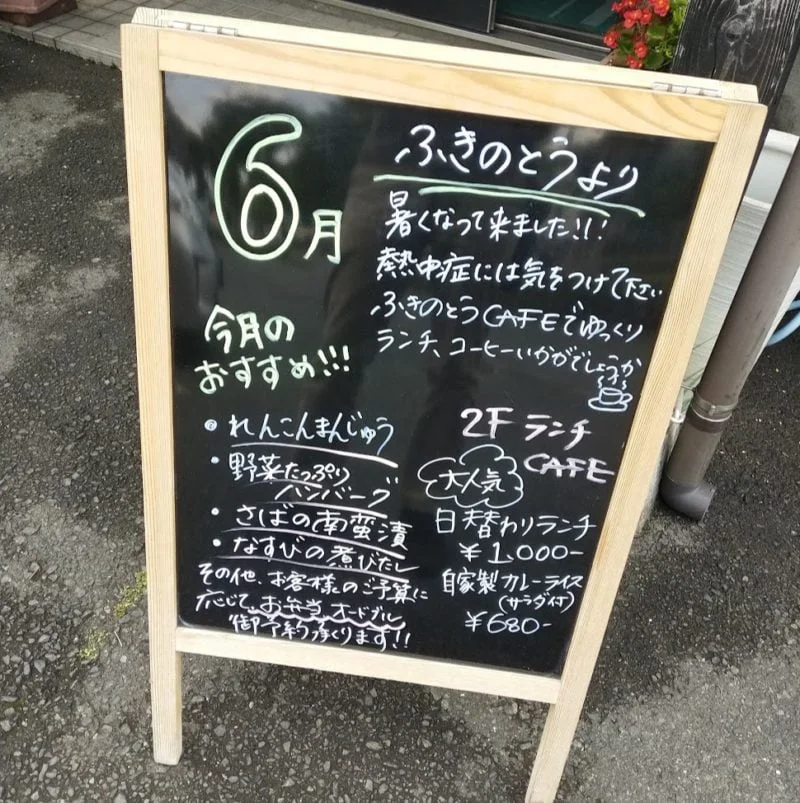 6月
ふきのとうより
暑くなって来ました!!!
熱中症には気をつけて下さい
ふきのとうCAFEでゆっくり
ランチ、コーヒーいかがでしょうか
今月の
おすすめ!!!
・れんこんまんじゅう
・野菜たっぷり
ハンバーグ
・さばの南蛮漬
・なすびの煮びたし
その他、お客様のご予算に
応じて、お弁当 オードブル
御予約承ります!!
2F ランチ
CAFE
大人気
日替わりランチ
¥1,000-
自家製カレーライス
(サラダ付)
¥680-